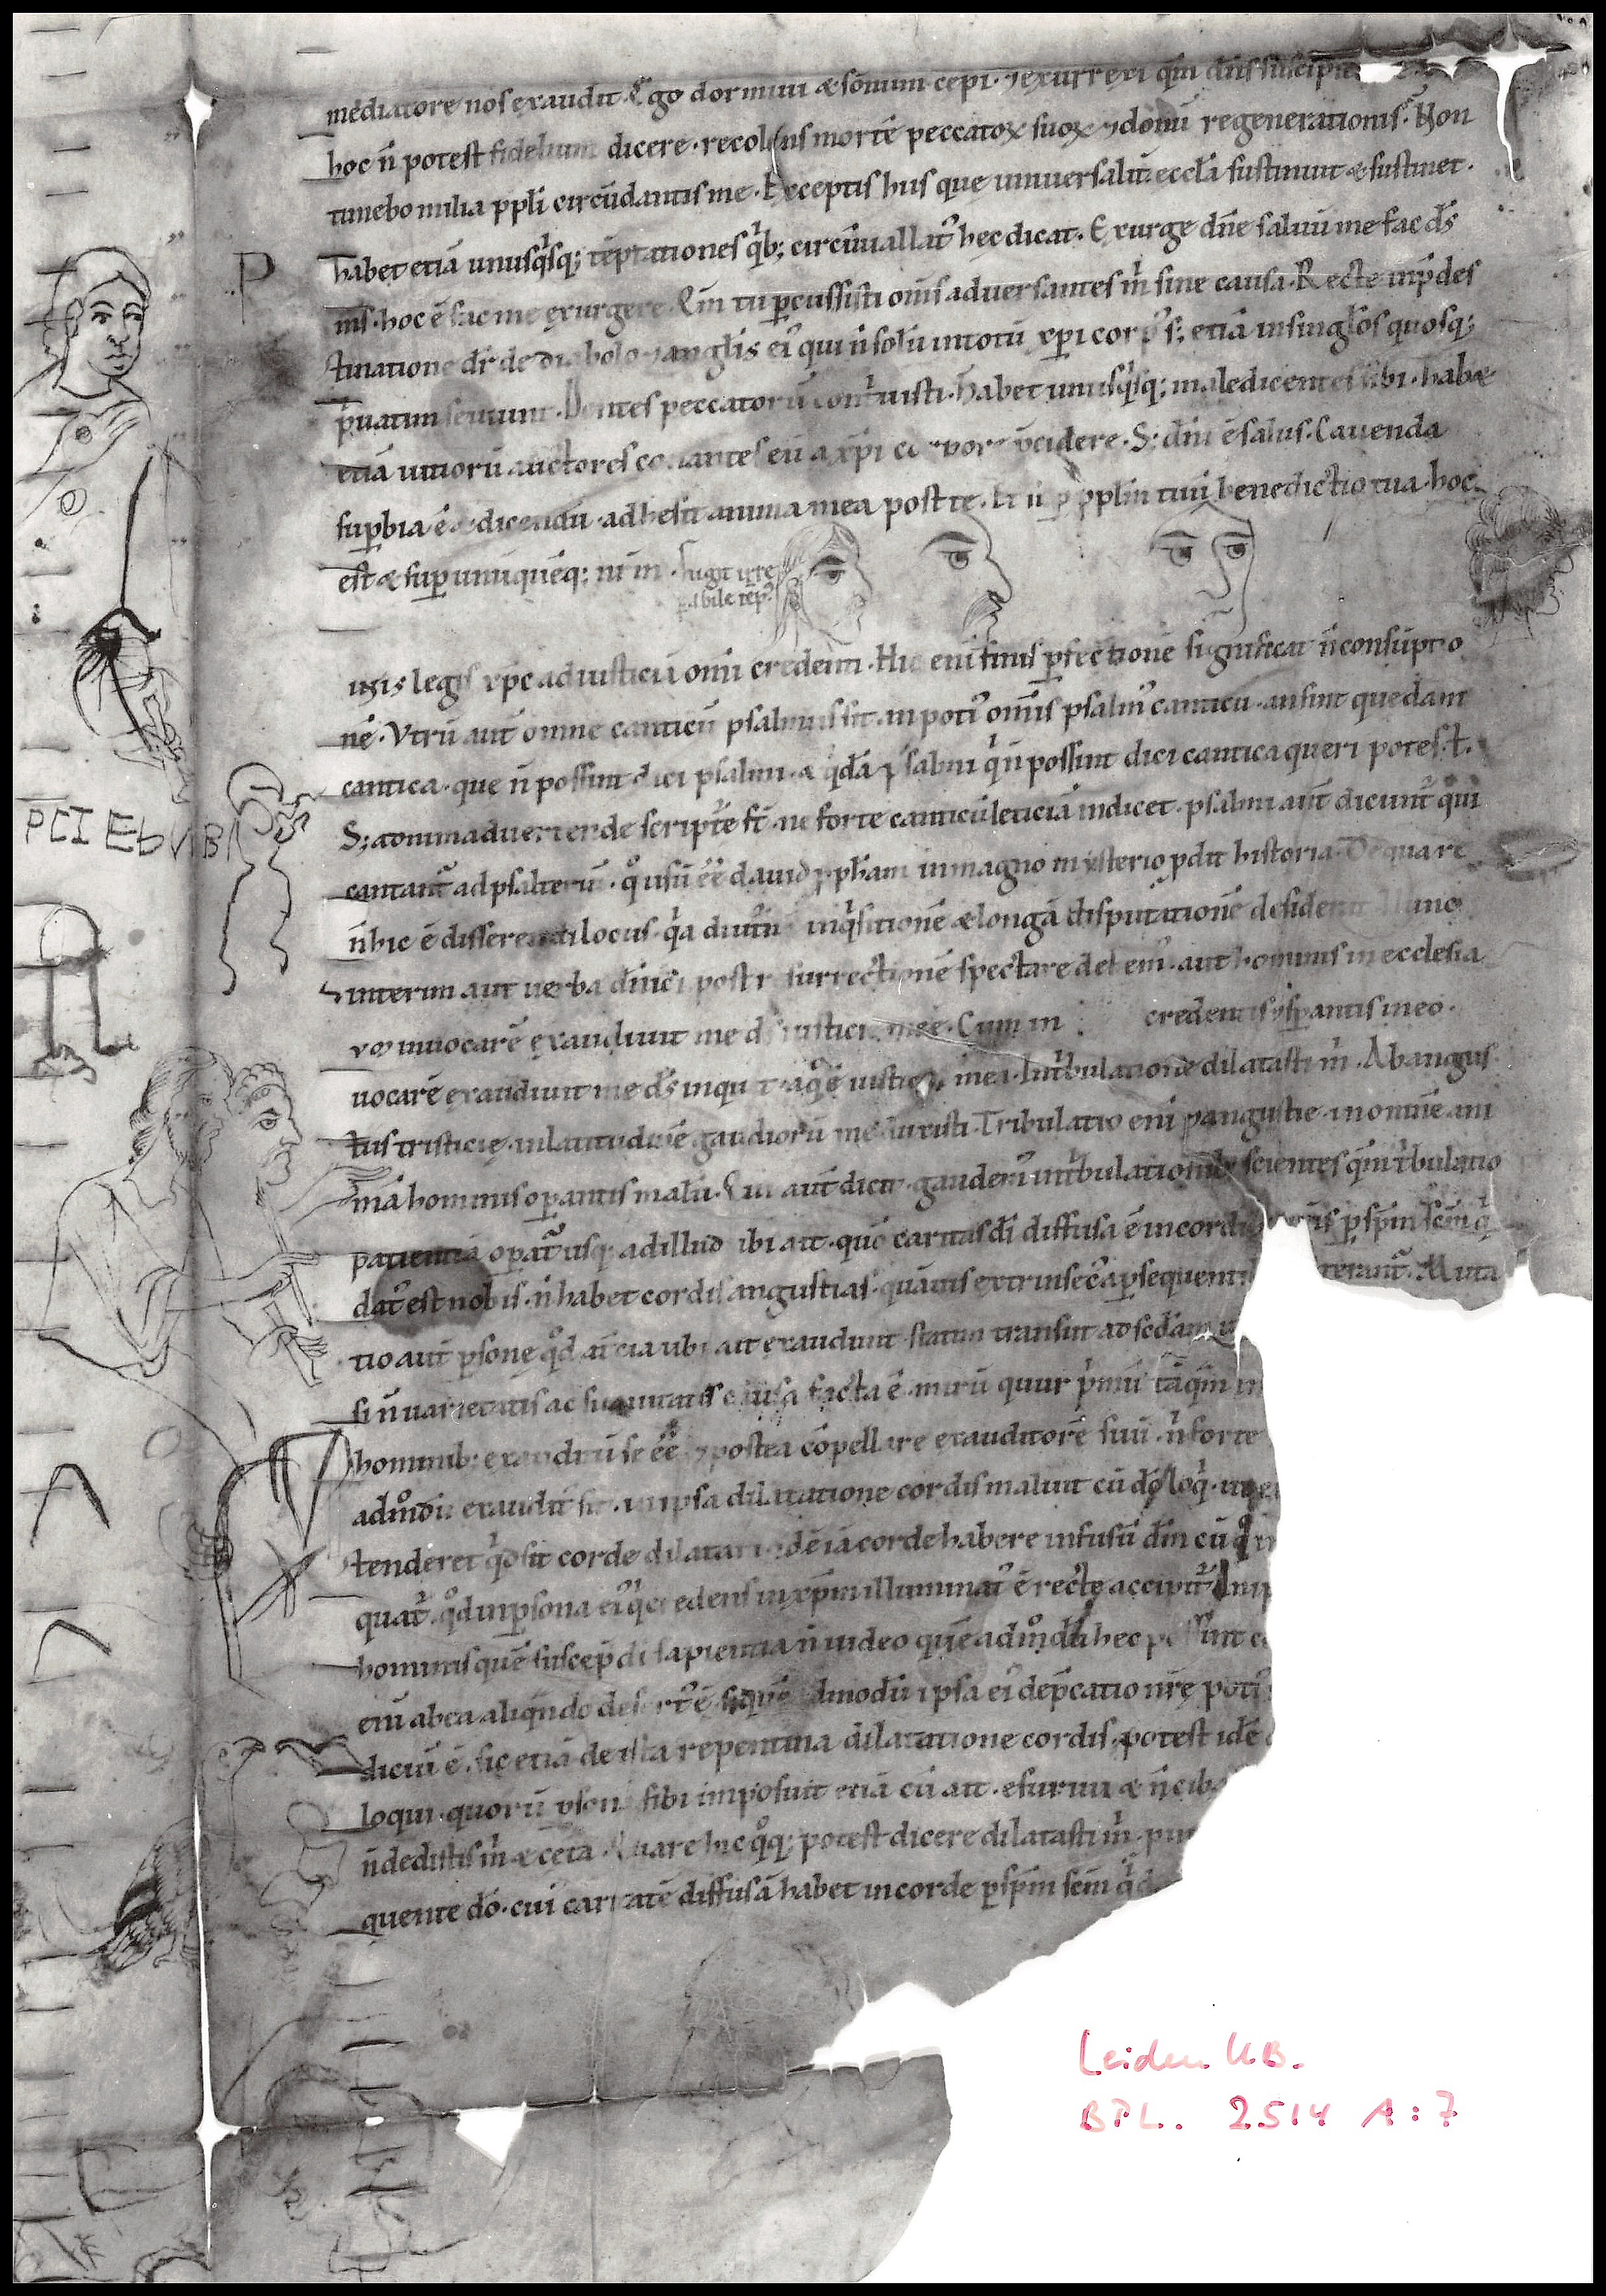 mediatore nos exaudit. Ego dormiui & somnum cepi. ⁊ exurrexi qm̄ dn̄s suscipit
hoc n̄ potest fidelium dicere. recolens mortē peccatoꝝ suoꝝ ⁊ donū regenerationis. Non
timebo milia ppli circūdantis me. Exceptis hiis que uniuersalit̄ eccl̄a sustinuit & sustinet.
P
habet etiā unusqͥsq; tēptationes qͥb; circūuallatꝰ hec dicat. Exurge dn̄e saluū me fac dš
mš. hoc ē fac me exurgere. Qm̄ tu ꝑcussisti om̄s aduersantes m̄ sine causa. Recte in p̄des
tinatione dr̄ de diabolo ⁊ anglis eiꝰ qui n̄ solū in totū xp̄i corpꝰ s; etiā in singlos quosq;
pͥuatim seuiunt. Dentes peccatorū contͥuisti. Habet unusqͥsq; maledicentes sibi. hab&
etiā uitiorū auctores conantes eū a xp̄i corpore p̄cidere. S; dn̄i ē salus. Cauenda
suꝑbia ē & dicendū. adhesit anima mea post te. Et sup ppl̄m tuū benedictio tua. hoc
est & suꝑ unūquēq; nr̄m. fugit irre
pabile tēpꝰ
inis legis xp̄c ad iusticiā om̄i credenti. Hic eni finis ꝑfectionē significat n̄ consūptio
nē. Vtrū aut̄ omne canticū psalmus sit. an potiꝰ om̄is psalmꝰ canticū. an sint quedam
cantica. que n̄ possunt dici psalmi. & qͥdā psalmi qͥ n̄ possint dici cantica queri potest.
S; animaduertende scriptͤe st̄. ne forte canticū leticiā indicet. psalmi aut̄ dicunt̄ qͥ
PCIEbVBI
cantant̄ ad psalteriū. qͦ usū ēē dauid pph̄am in magno mysterio pdit historia. De qua re
n̄ hic ē disserendi locus. qͥa diuturnā inqͥsitionē & longā disputationē desiderat. Nunc
interim aut uerba dn̄ici post resurrectionē spectare debemꝰ. aut hominis in ecclesia
cū inuocarē exaudiuit me dš iusticie mee. Cum in credentis ⁊ sꝑantis in eo.
uocarē exaudiuit me dš inquit. a qͦ ē iusticia mea. In tͥbulatione dilatasti m̄. Ab angus
tiis tristicię. in latitudinē gaudiorū me duxisti. Tribulatio eni & angustie in omnē ani
mā hominis oꝑantis malū. Qui aut̄ dicit. gaudemꝰ in tͥbulationib; scientes qm̄ tͥbulatio
patientiā oꝑat̄ usq; ad illud ibi ait. qm̄ caritas dī diffusa ē in cordibus nrīs ꝑ spm̄ scm̄ qͥ
datꝰ est nobis. n̄ habet cordis angustias. quāuis extrinsecꝰ a ꝑsequentib terant̄. Muta
tio aut̄ ꝑsone qͦd a tercia ubi ait exaudiuit. statim transiit ad scd̄am
si n̄ uarietatis ac suauitatis causa facta ē. mirū quur pͥmū tāqͣm
hominib; exauditū se ēē & postea cōpellare exauditorē suū. n̄ forte
admodū exauditꝰ sit. in ipsa dilatatione cordis maluit cū dō loqͥ. ut
tenderet qͥd sit corde dilatari. id ē iā corde habere infusū dm̄ cū qͦ
quat̄. qͦd in ꝑsona eiꝰ qͥ credens in xp̄m illuminatꝰ ē recte accipit̄.
hominis quē suscep̄ dī sapientia n̄ uideo quēadmͦdū hec possunt
eni ab ea aliqͣndo desertꝰ ē. sͥ quēadmodū ipsa eiꝰ dep̄catio nr̄ę potiꝰ
diciū ē. sic etiā de ista repentina dilatatione cordis. potest idē
loqui. quorū ꝑsonā sibi imposuit etiā cū ait. esuriui & n̄
n̄ dedistis m̄ & cet̄a. Quare hic qͦq; potest dicere dilatasti m̄.
quente dō. cui caritatē diffusā habet in corde ꝑ spm̄ scm̄ qͥ
Leiden UB.
BPL. 2514 A:7